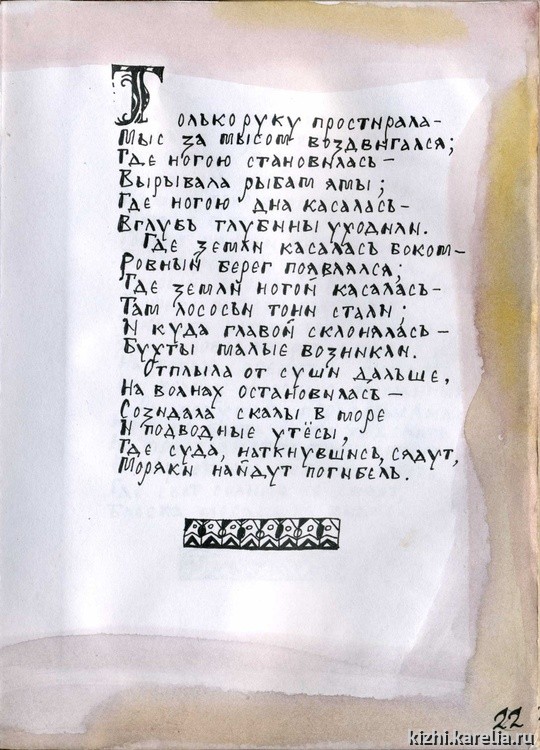 Только руку простирала–
Мыс за мысом воздвигался;
Где ногою становилась–
Вырывала рыбам ямы;
Где ногою дна касалась–
Вглубь глубины уходили.
Где земли касалась боком–
Ровный берег появлялся;
Где земли ногой касалась–
Там лососьи тони стали;
И куда главой склонялась–
Бухты малые возникли.
Отплыла от суши дальше,
На волнах остановилась–
Создала скалы в море
И подводные утёсы,
Где суда, наткнувшись, сядут,
Моряки найдут погибель.
22
kizhi.karelia.ru